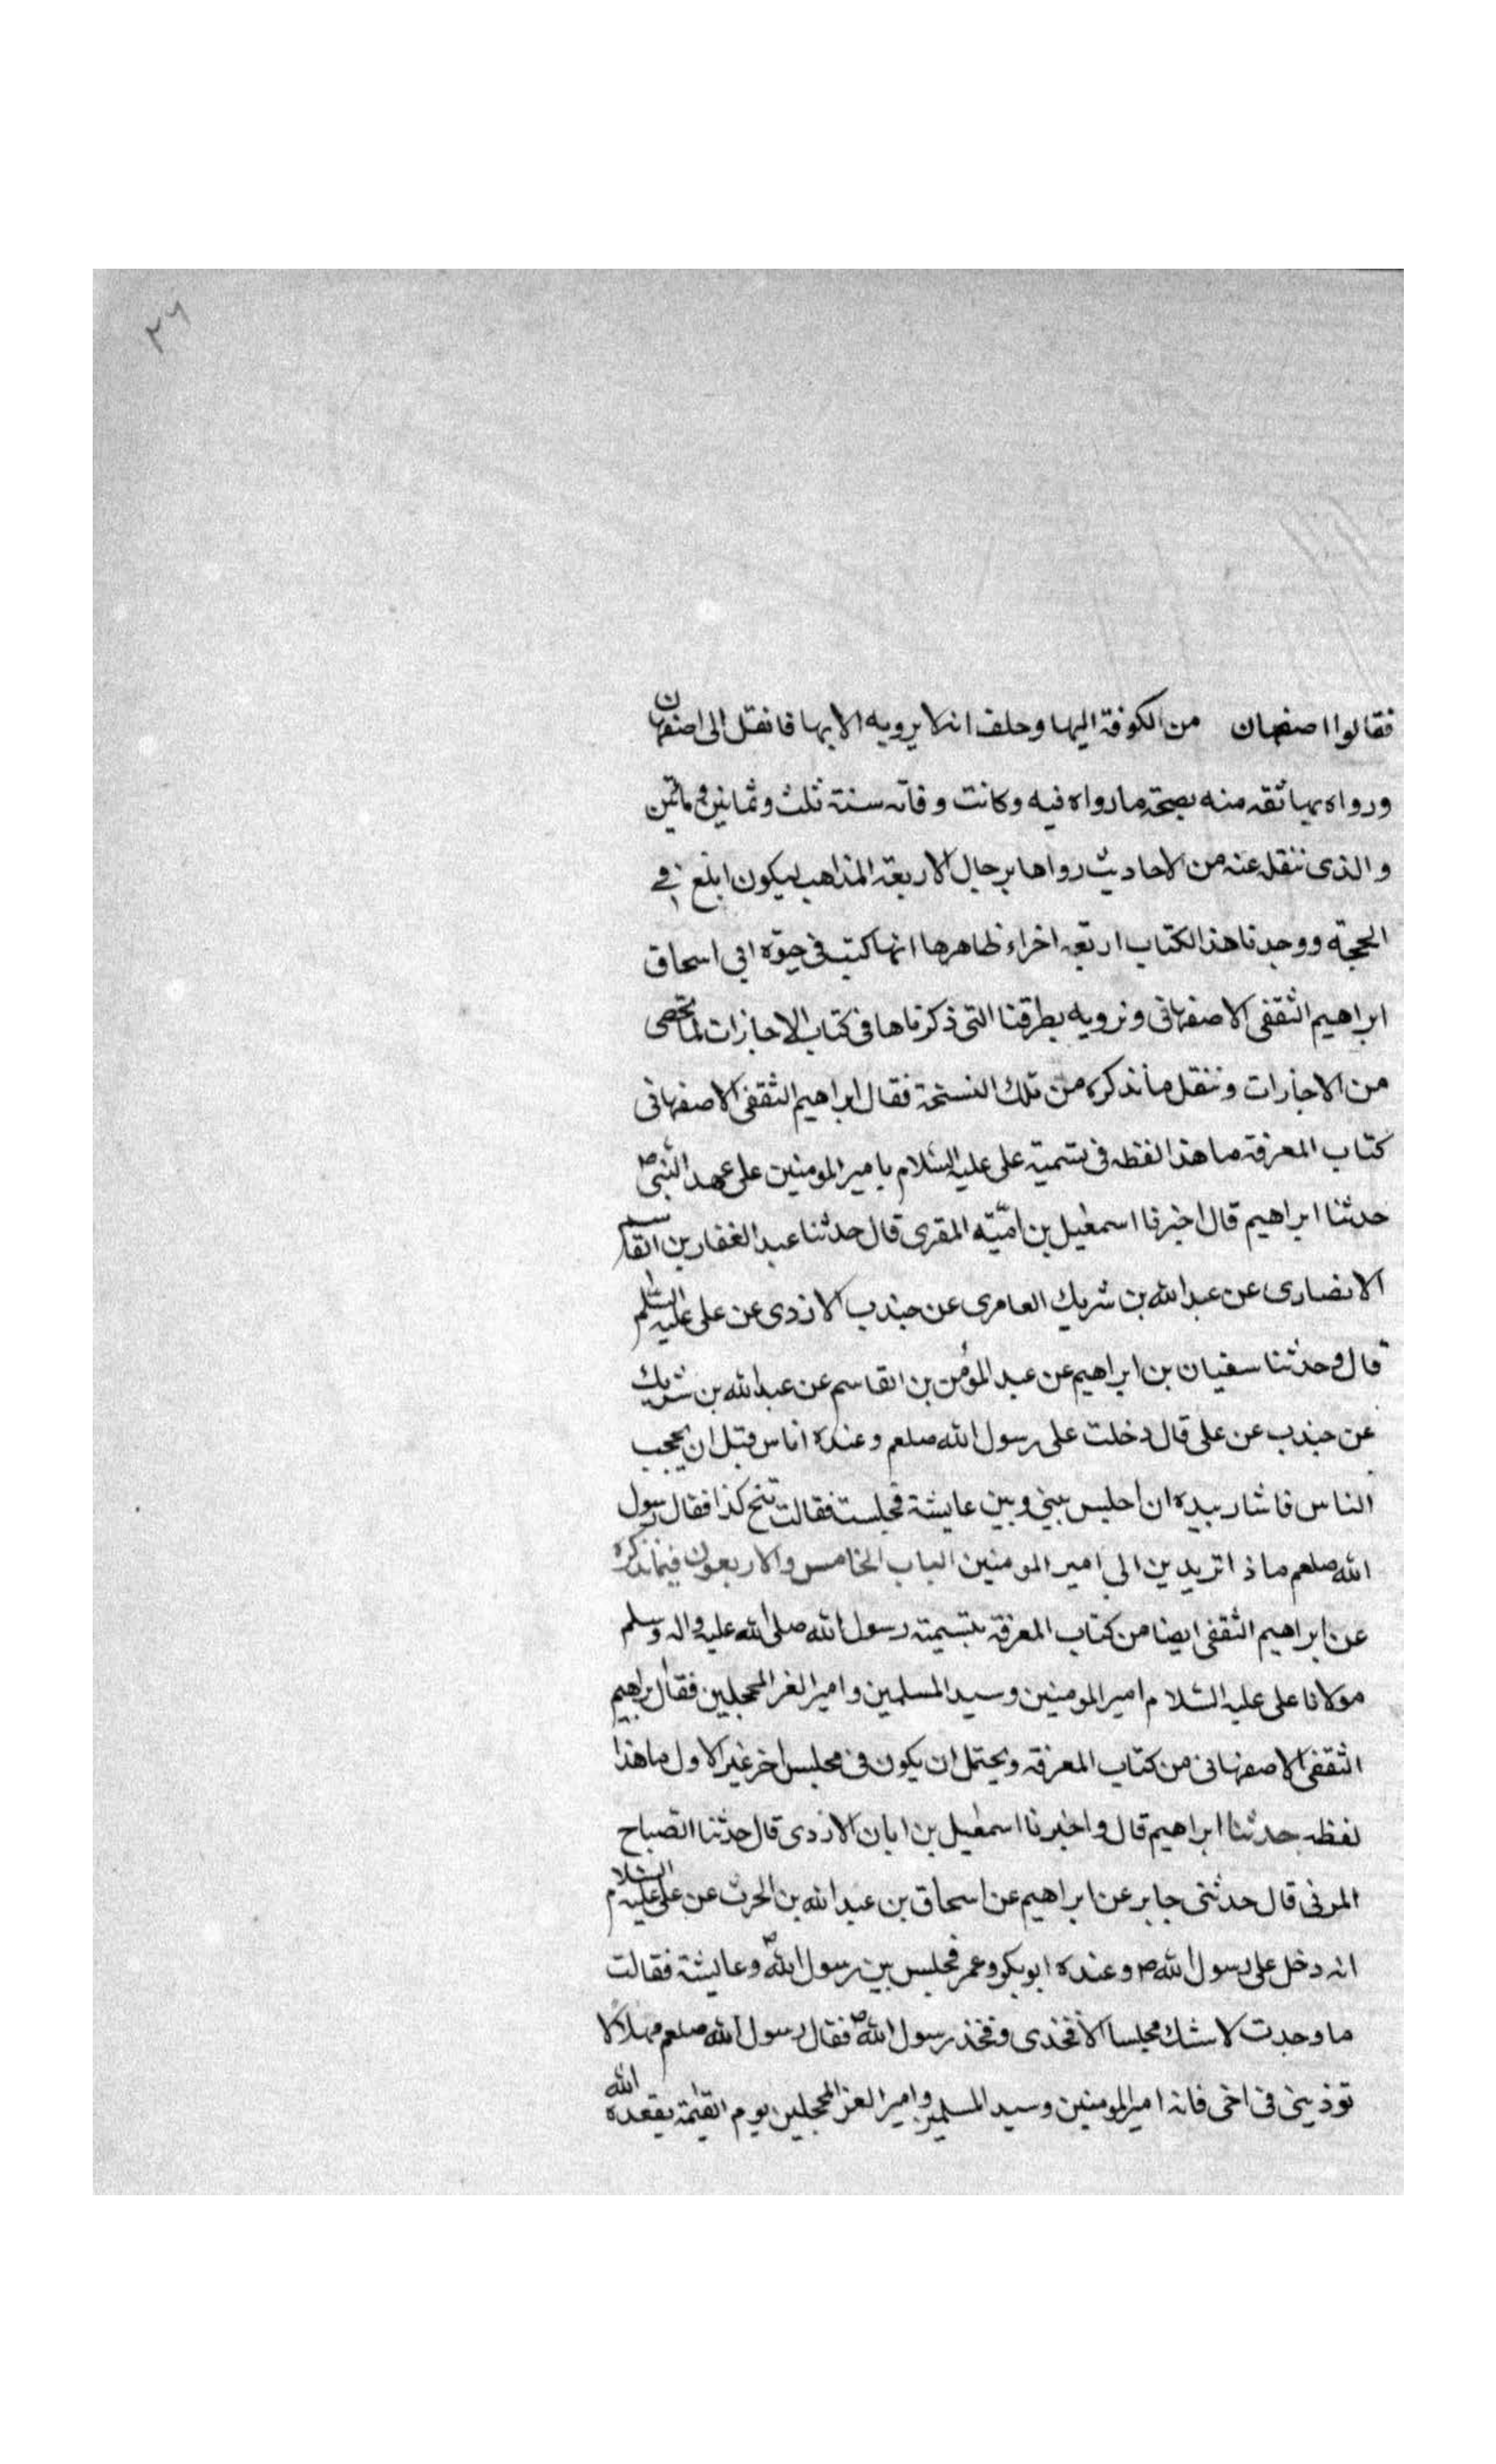 ٢٦
فقالوا اصفهان من الكوفة اليها وحلف انه لا يرويه الا بها فانتقل الى اصفهان
ورواه بها ثقه منه بصحة ما رواه فيه وكانت وفاته سنة ثلث وثمانين و مائتين
والذى ننقله عنه من الاحاديث رواها برجال الاربعة المذاهب ليكون ابلغ فى
الحجة ووجدنا هذا الكتاب اربعه اخراء ظاهرها انها كتبت فى حيوة ابى اسحاق
ابراهيم الثقفى الاصفهانى ونرويه بطرقنا التى ذكرناها فى كتاب الاجازات لما يخصى
من الاجازات وننقل ما نذكره من تلك النسخة فقال ابراهيم الثقفى الاصفهانى
كتاب المعرفة ما هذا لفظه فى تسمية على عليه السلام بامير المومنين على عهد النبى ص
حدثنا ابراهيم قال اخبرنا اسمعيل بن اميّة المقرى قال حدثنا عبد الغفار بن القاسم
الانصارى عن عبد الله بن شريك العامرى عن جندب الازدى عن على عليه السلم
قال وحدثنا سفيان بن ابراهيم عن عبد المؤمن بن القاسم عن عبد الله بن شريك
عن جندب عن على قال دخلت على رسول الله صلعم وعنده اناس قبل ان يحجب
الناس فاشار بيده ان اجلس بينى وبين عايشة فجلست فقالت تنح كذا فقال رسول
الله صلعم ماذا تريدين الى امير المومنين الباب الخامس والاربعون فيما نذكره
عن ابراهيم الثقفى ايضا من كتاب المعرفة بتسمية رسول الله صلى الله عليه واله وسلم
مولانا على عليه السلام امير المومنين وسيد المسلمين وامير الغر المحجلين فقال ابراهيم
الثقفى الاصفهانى من كتاب المعرفة ويحتمل ان يكون فى مجلس اخر غير الاول ما هذا
لفظه حدثنا ابراهيم قال واخبرنا اسمعيل بن ابان الازدى قال حدثنا الصباح
المزنى قال حدثنى جابر عن ابراهيم عن اسحاق بن عبد الله بن الحرث عن على عليه السلام
انه دخل على رسول الله ص وعنده ابو بكر وعمر فجلس بين رسول الله ص وعايشة فقالت
ما وجدت لاستك مجلسا الا فخذى وفخذ رسول الله ص فقال رسول الله صلعم مهلا لا
توذينى فى اخى فانه امير المومنين وسيد المسلمين وامير الغر المحجلين يوم القيمة يقعده الله